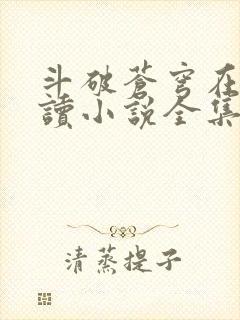 斗破蒼穹在
讀小說全集
清蒸提子